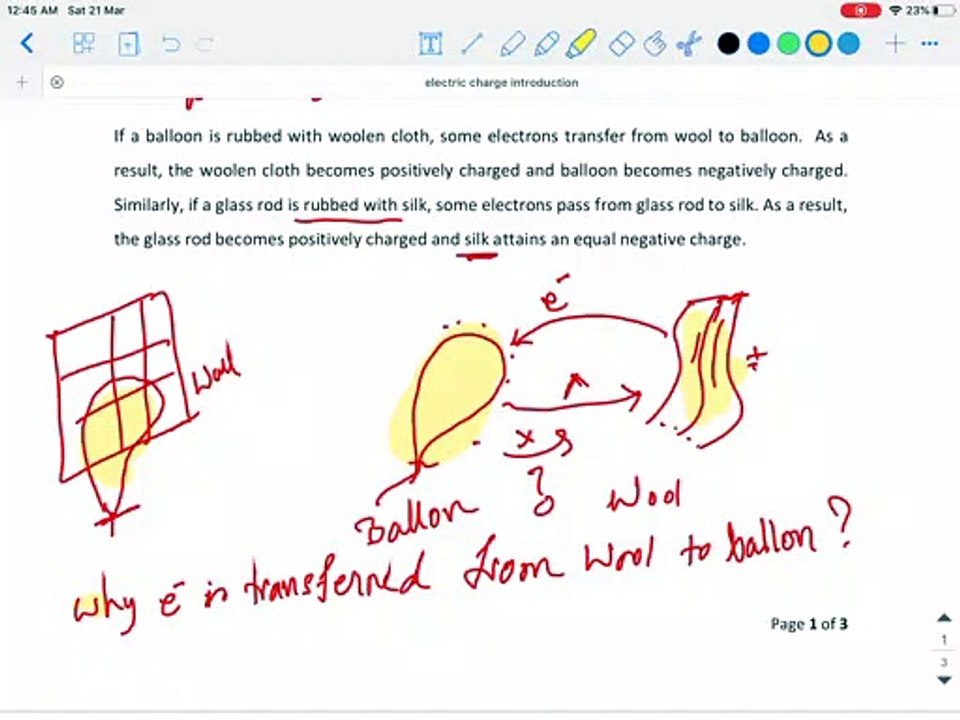 12:45 AM Sat 21 Mar
23%
electric charge introduction
If a balloon is rubbed with woolen cloth, some electrons transfer from wool to balloon. As a
result, the woolen cloth becomes positively charged and balloon becomes negatively charged.
Similarly, if a glass rod is rubbed with silk, some electrons pass from glass rod to silk. As a result,
the glass rod becomes positively charged and silk attains an equal negative charge.
e-
Wall
+
Ballon
?
Wool
why e- is transferred from wool to ballon ?
Page 1 of 3
1
3